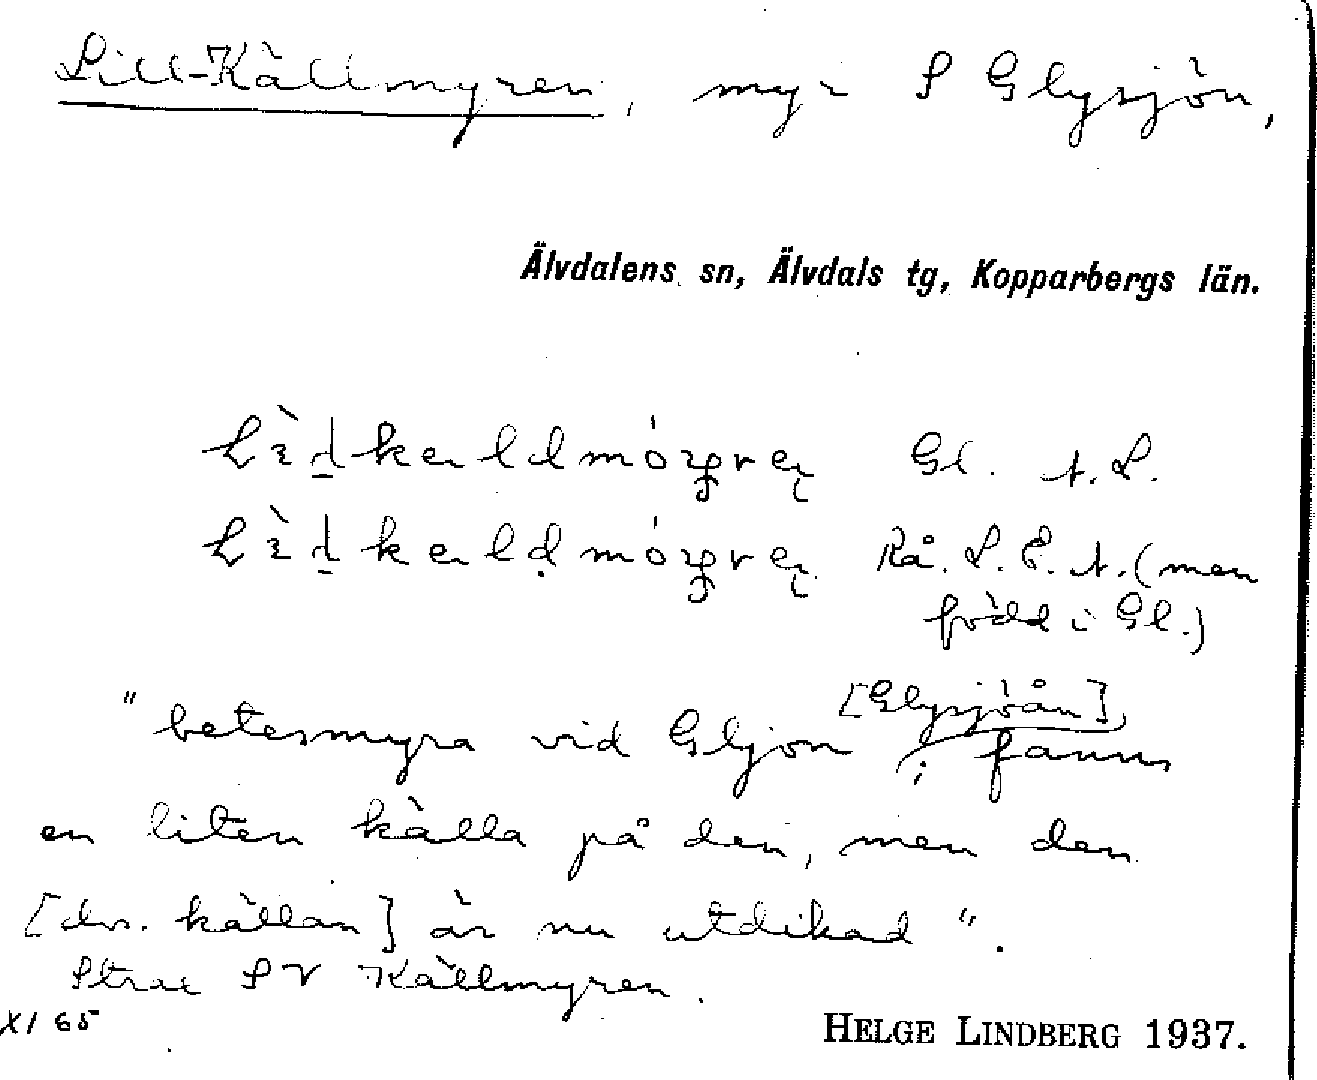 Lill-Källmyren, myr S Glysjön,
Älvdalens sn, Älvdals tg, Kopparbergs län.
Gl. A. L.
Rå. L. E. A. (men
född i Gl.)
[Glysjöån]
"betesmyra vid Gljon ; fanns
en liten källa på den, men den
[dvs. källan] är nu utdikad".
Strax SV Källmyren.
XI 65
HELGE LINDBERG 1937.